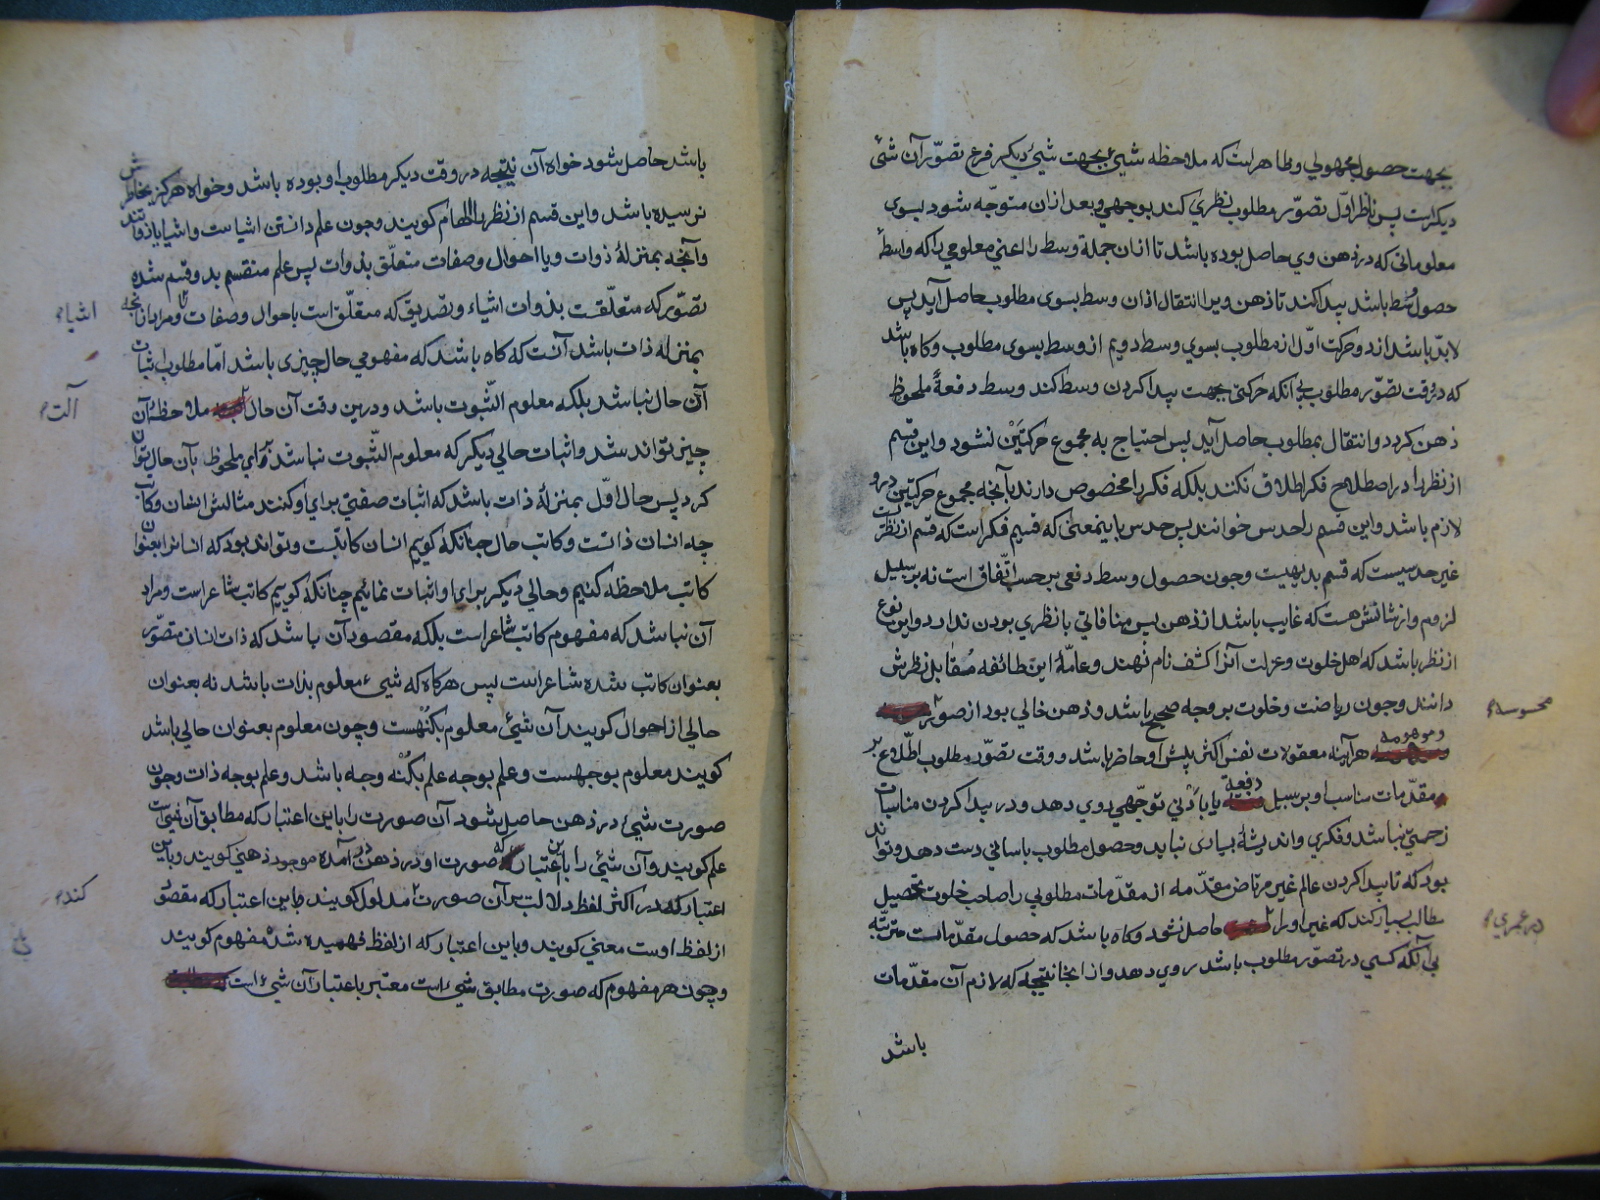 بجهت حصول مجهولی و ظاهر است که ملاحظه شیئ بجهت شیئ دیگر فرع تصوّر آن شئ
دیکر است پس ناظر اوّل تصوّر مطلوب نظری کند بوجهی و بعد ازان متوجّه شود بسوی
معلوماتی که در ذهن وی حاصل بوده باشد تا ازان جمله وسط را اعنی معلومی را که واسطهٔ
حصول وسط باشد پیدا کند تا ذهن ویرا انتقال ازان وسط بسوی مطلوب حاصل آید پس
لابدّ باشد از دو حرکت اوّل از مطلوب بسوی وسط دویم از وسط بسوی مطلوب و کاه باشد
که در وقت تصوّر مطلوب بی آنکه حرکتی بجهت پیدا کردن وسط کند وسط دفعةً ملحوظ
ذهن کردد و انتقال بمطلوب حاصل آید پس احتیاج به مجموع حرکتَیْن نشود و این قسم
از نظر را در اصطلاح فکر اطلاق نکنند بلکه فکر را مخصوص دارند بآنچه مجموع حرکتین درو
لازم باشد و این قسم را حدس خوانند پس حدس باینمعنی که قسیم فکر است که قسم از نظرست
غیر حدسیست که قسم بدیهیت و چون حصول وسط دفعی بر حسب اتّفاق است نه بر سبیل
لزوم و از شانش هست که غایب باشد از ذهن پس منافاتی با نظری بودن ندارد و این نوع
از نظر باشد که اهل خلوت و عزلت آنرا کشف نام نهند و عامّهٔ این طائفه مقابل نظرش
دانند و چون ریاضت و خلوت بر وجه صحیح باشد و ذهن خالی بود از صور
محسوسه
و موهومه هرآینه معقولات نفس اکثر پیش او حاضر باشد و وقت تصوّر مطلوب اطّلاع بر
مقدّمات مناسب او بر سبیل دفعیه یا با دنی توجّهی روی دهد و در پیدا کردن مناسبات
زحمتی نباشد و فکری و اندیشهٔ بسیاری نباید و حصول مطلوب باسانی دست دهد و تواند
بود که تا پیدا کردن عالم غیر مرتاض مقدّمه از مقدّمات مطلوبی را صاحب خلوت تحصیل
مطالب بسیار کند که غیر او را حاصل نشود و کاه باشد که حصول مقدّمات مترتّبه
در عمری
بی آنکه کسی در تصوّر مطلوب باشد روی دهد و از انجا نتیجه که لازم آن مقدّمات
باشد
باشد حاصل شود خواه آن نتیجه در وقت دیکر مطلوب او بوده باشد و خواه هرکز بخاطرش
نرسیده باشد و این قسم از نظر را الهام کویند و چون علم دانستن اشیاست و اشیا یا ذواتند
و آنچه بمنزلهٔ ذوات و یا احوال و صفات متعلّق بذوات پس علم منقسم بدو قسم شده
تصوّر که متعلّقست بذوات اشیاء و تصدیق که متعلّق است باحوال و صفات و مراد از آنچه
اشیا
بمنزلهٔ ذات باشد آنست که کاه باشد که مفهومی حال چیزی باشد امّا مطلوب اثبات
آن حال نباشد بلکه معلوم الثّبوت باشد و درین وقت آن حال ملاحظهٔ آن
آلت
چیز تواند شد و اثبات حالی دیکر که معلوم الثّبوت نباشد برای ملحوظ بآن حال توان
کرد پس حال اوّل بمنزلهٔ ذات باشد که اثبات صفتی برای او کنند مثالش انسان و کاتب
چه انسان ذاتست و کاتب حال چنانکه کوییم انسان کاتبست و تواند بود که انسانرا بعنوان
کاتب ملاحظه کنیم و حالی دیکر برای او اثبات نمائیم چنانکه کوییم کاتب شاعر است و مراد
آن نباشد که مفهوم کاتب شاعر است بلکه مقصود آن باشد که ذات انسان متصوّر
بعنوان کاتب شده شاعر است پس هرکاه که شیئ معلوم بذات باشد نه بعنوان
حالی از احوال کویند آن شیئ معلوم بکنهست و چون معلوم بعنوان حالی باشد
کویند معلوم بوجهست و علم بوجه علم بکُنْه وجه باشد و علم بوجه ذات و چون
صورت شیئ در ذهن حاصل شود آن صورت را باین اعتبار که مطابق آن شئ است
علم کویند و آن شیئ را باین اعتبار که صورت او در ذهن در آمده موجود ذهنی کویند و باین
اعتبار که در اکثر لفظ دلالت بر آن صورت مدلول کویند و باین اعتبار که مقصود
کند
از لفظ اوست معنی کویند و باین اعتبار که از لفظ فهمیده شد مفهوم کویند
و چون هر مفهوم که صورت مطابق شیئ است معتبر باعتبار آن شیئ است